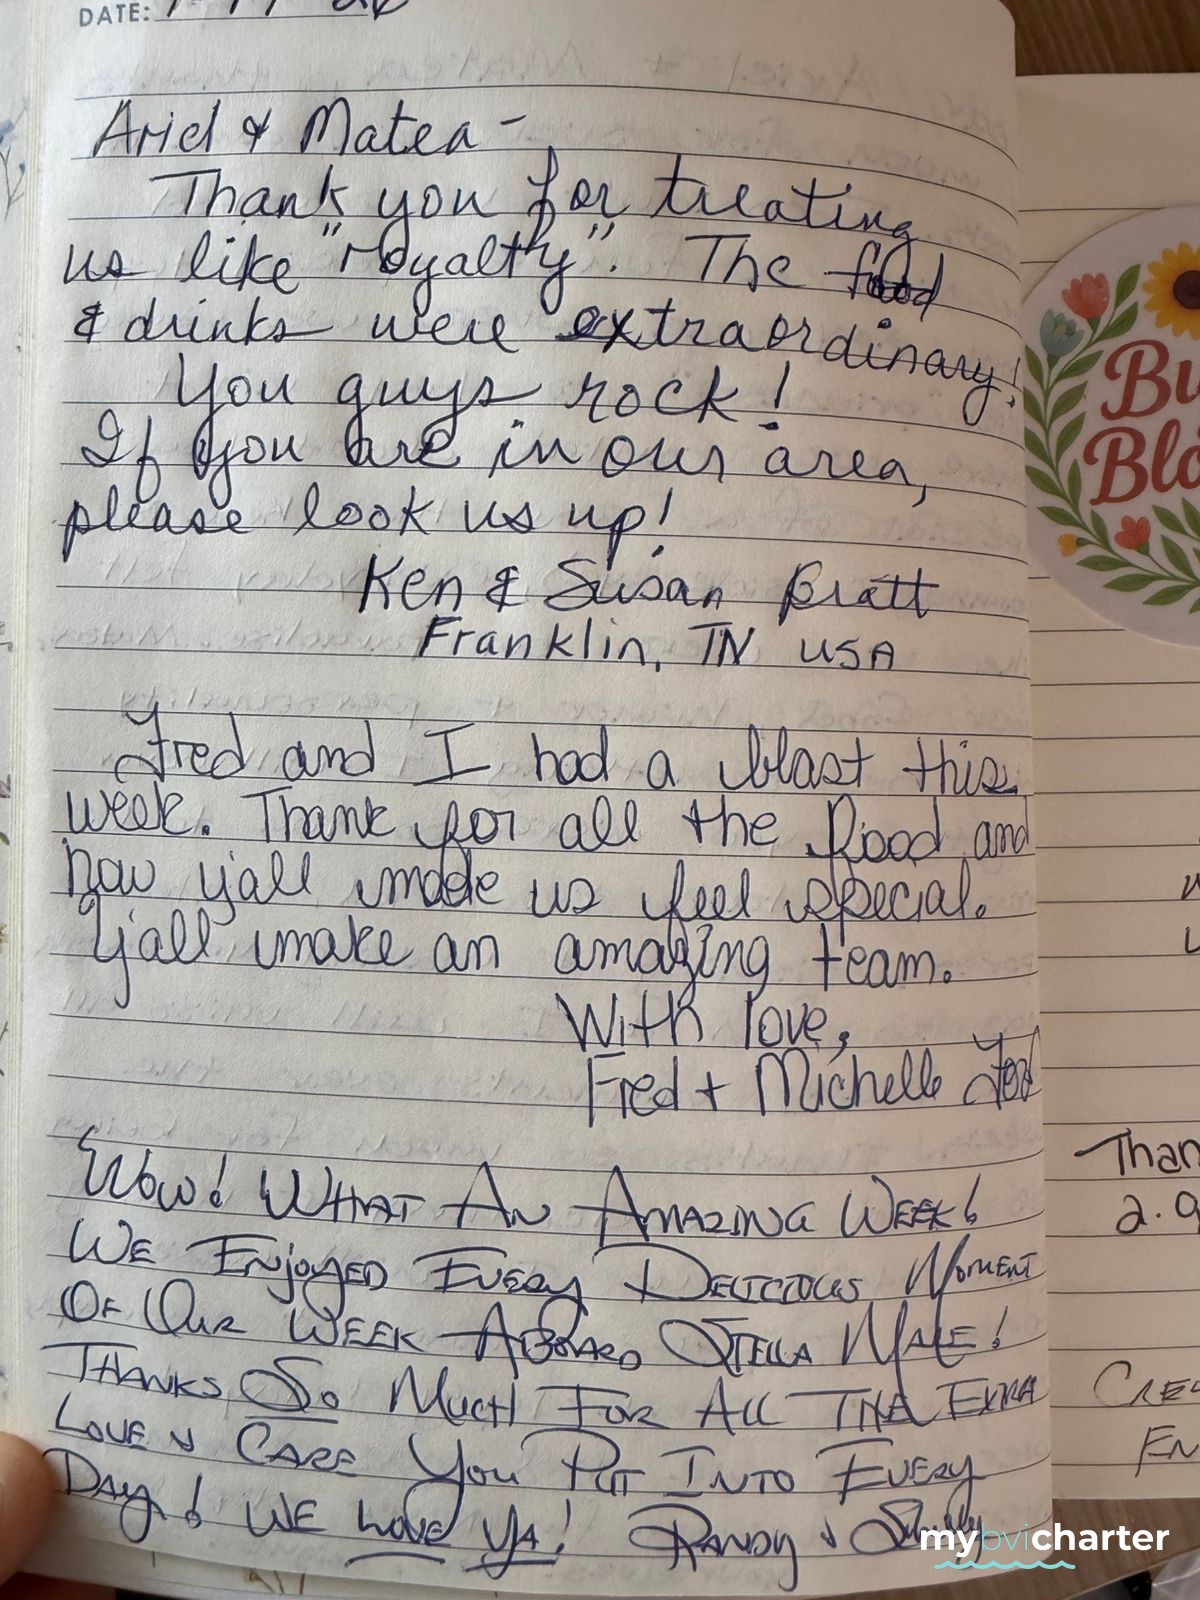 DATE:
Ariel & Matea -
Thank you for treating
us like "royalty". The food
& drinks were extraordinary!
You guys rock!
If you are in our area,
please look us up!
Ken & Susan Bratt
Franklin, TN USA
Fred and I had a blast this
week. Thank for all the food and
how y'all made us feel special.
Y'all make an amazing team.
With love,
Fred + Michelle Ford
WOW! WHAT AN AMAZING WEEK!
WE ENJOYED EVERY DELICIOUS MOMENT
OF OUR WEEK ABOARD STELLA MARE!
THANKS SO MUCH FOR ALL THE EXTRA
LOVE & CARE YOU PUT INTO EVERY
DAY! WE LOVE YA! RANDY &
Than
2.9
CREW
EN
mybvicharter